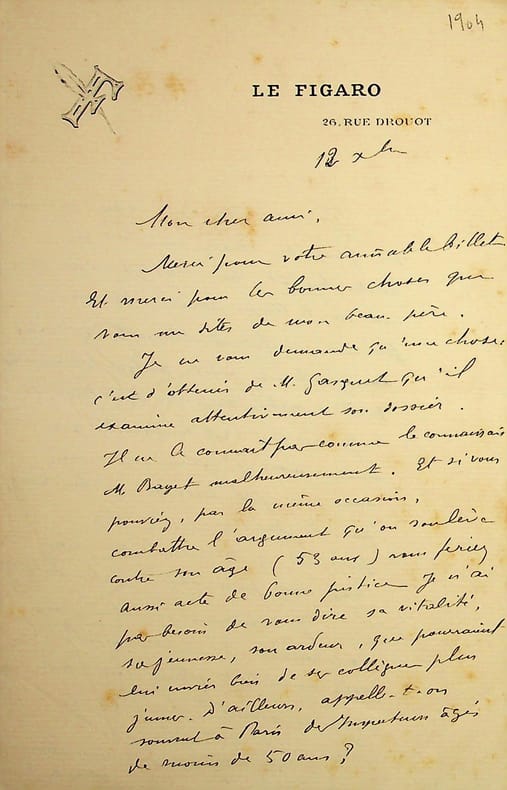 1904
LE FIGARO
26, RUE DROUOT
12 xbre
Mon cher ami,
Merci pour votre aimable billet
Et merci pour les bonnes choses que
vous me dites de mon beau-père.
Je ne vous demande qu'une chose,
c'est d'obtenir de M. Gasquet qu'il
examine attentivement son dossier.
Il ne le connaît pas comme le connaissait
M. Bayet malheureusement. Et si vous
pouviez, par la même occasion,
combattre l'argument qu'on soulève
contre son âge (53 ans) vous feriez
aussi acte de bonne justice. Je n'ai
pas besoin de vous dire sa vitalité,
sa jeunesse, son ardeur, que pourraient
lui envier bien de ses collègues plus
jeunes. D'ailleurs, appelle-t-on
souvent à Paris des Inspecteurs âgés
de moins de 50 ans ?